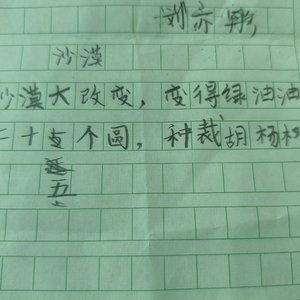 刘亦
沙漠
沙漠大改变，变得绿油油
二十五个圆，种裁胡杨
五